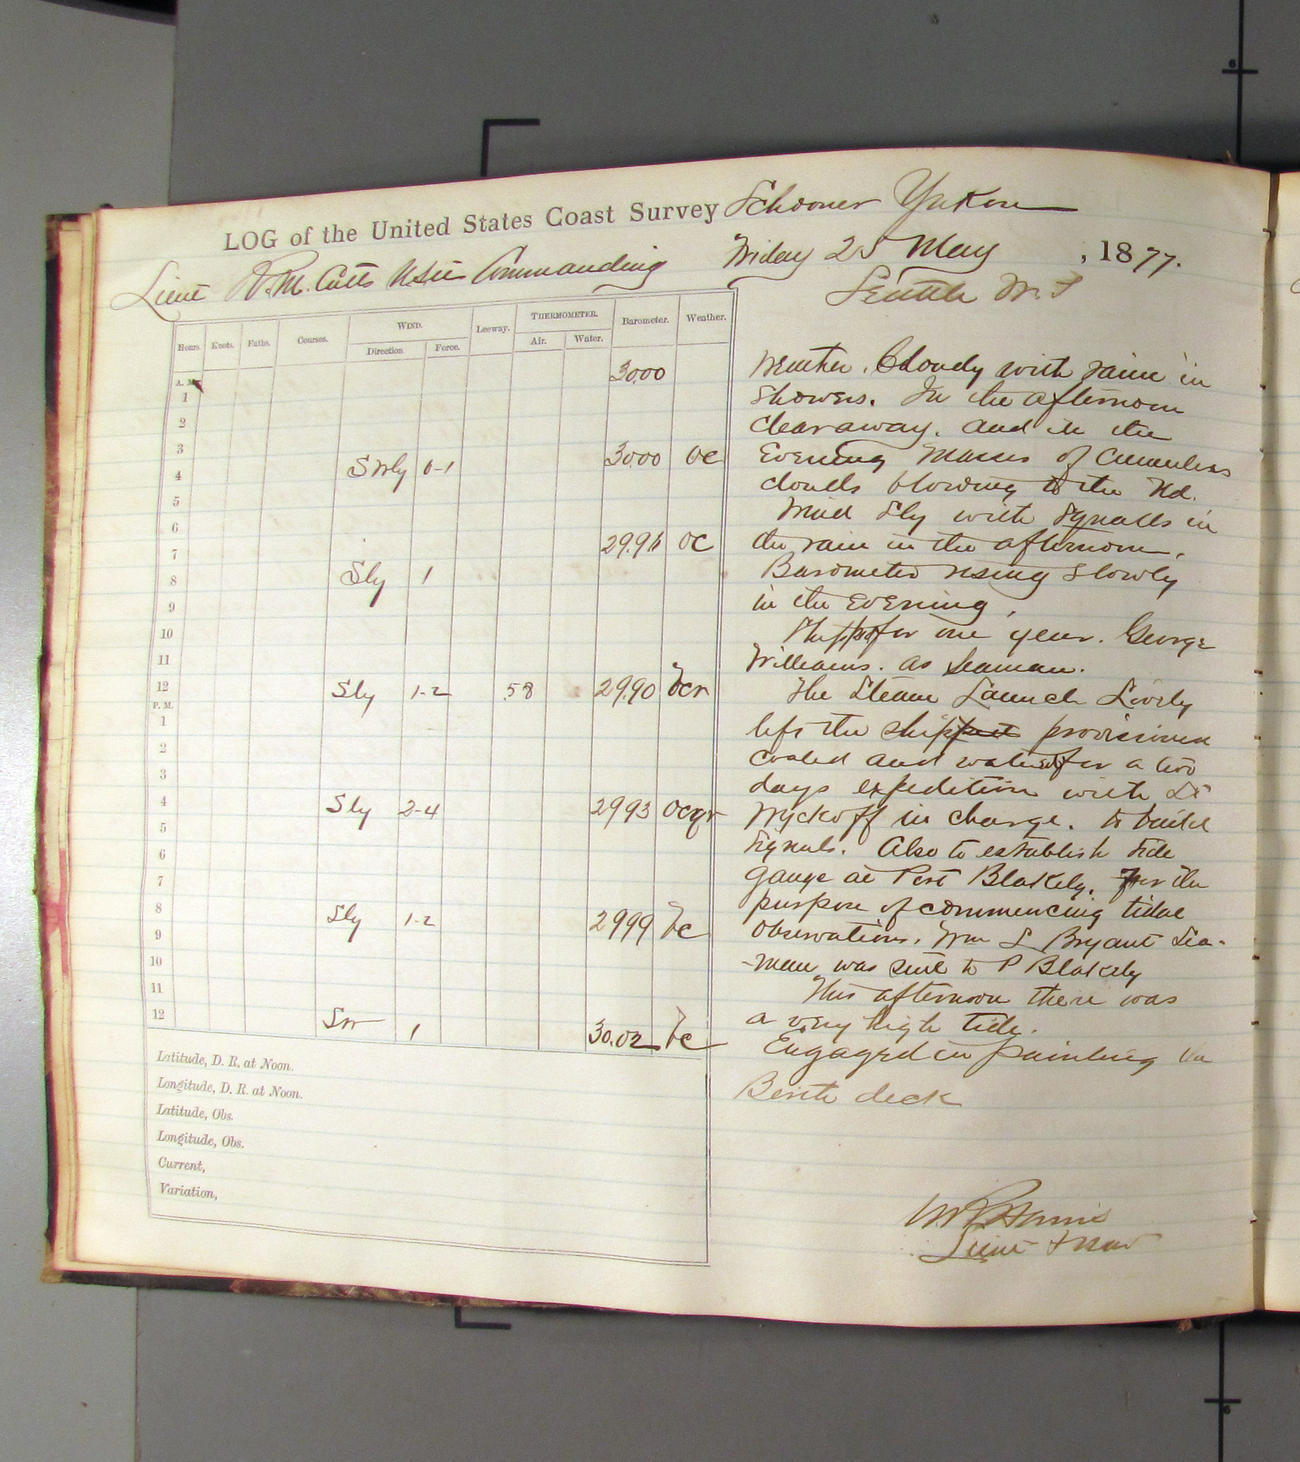 LOG of the United States Coast Survey Schooner Yukon
Lieut R. M. Cutts USN Commanding Friday 25 May , 1877.
Seattle W. T
Hours. Knots. Faths. Courses. WIND. Leeway. THERMOMETER. Barometer. Weather.
Direction. Force. Air. Water.
A. M. 30.00
1
2
3
4 SWly 0-1 30.00 oc
5
6
7 29.96 oc
8 Sly 1
9
10
11
12 Sly 1-2 58 29.90 bcr
P. M.
1
2
3
4 Sly 2-4 2993 ocqr
5
6
7
8 Sly 1-2 2999 bc
9
10
11
12 SW 1 30.02 bc
Latitude, D. R. at Noon.
Longitude, D. R. at Noon.
Latitude, Obs.
Longitude, Obs.
Current,
Variation,
Weather. Cloudy with rain in
showers. In the afternoon
clear away. and in the
Evening Masses of Cumulus
clouds blowing to the Nd.
Wind Sly with squalls in
the rain in the afternoon.
Barometer rising slowly
in the Evening.
Shipped for one year. George
Williams. as Seaman.
The Steam Launch Lively
left the ship provisioned
coaled and watered for a two
days expedition with Lt
Wyckoff in charge. to build
signals. Also to establish tide
gauge at Port Blakely. for the
purpose of commencing tidal
observations. Wm L Bryant Sea-
-man was sent to P Blakely
This afternoon there was
a very high tide.
Engaged in painting the
Berth deck
Lieut & Nav